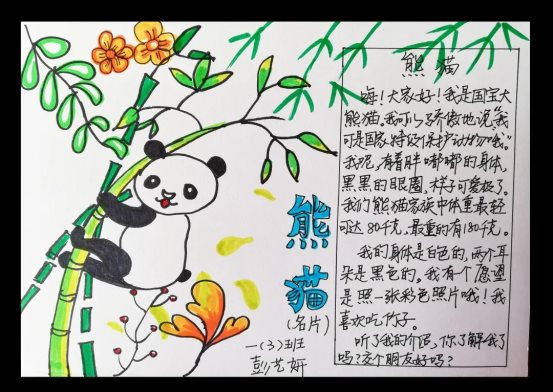 熊猫
嗨！大家好！我是国宝大
熊猫。我可以骄傲地说“我
可是国家特级保护动物哦”。
我呢，有着胖嘟嘟的身体，
黑黑的眼圈，样子可爱极了。
我们熊猫家族中体重最轻
可达80千克，最重的有180千克。
我的身体是白色的，两个耳
朵是黑色的。我有个愿望
是照一张彩色照片哦！我
喜欢吃竹子。
听了我的介绍，你了解我了
吗？交个朋友好吗？
熊
猫
（名片）
一（3）班
彭艺妍